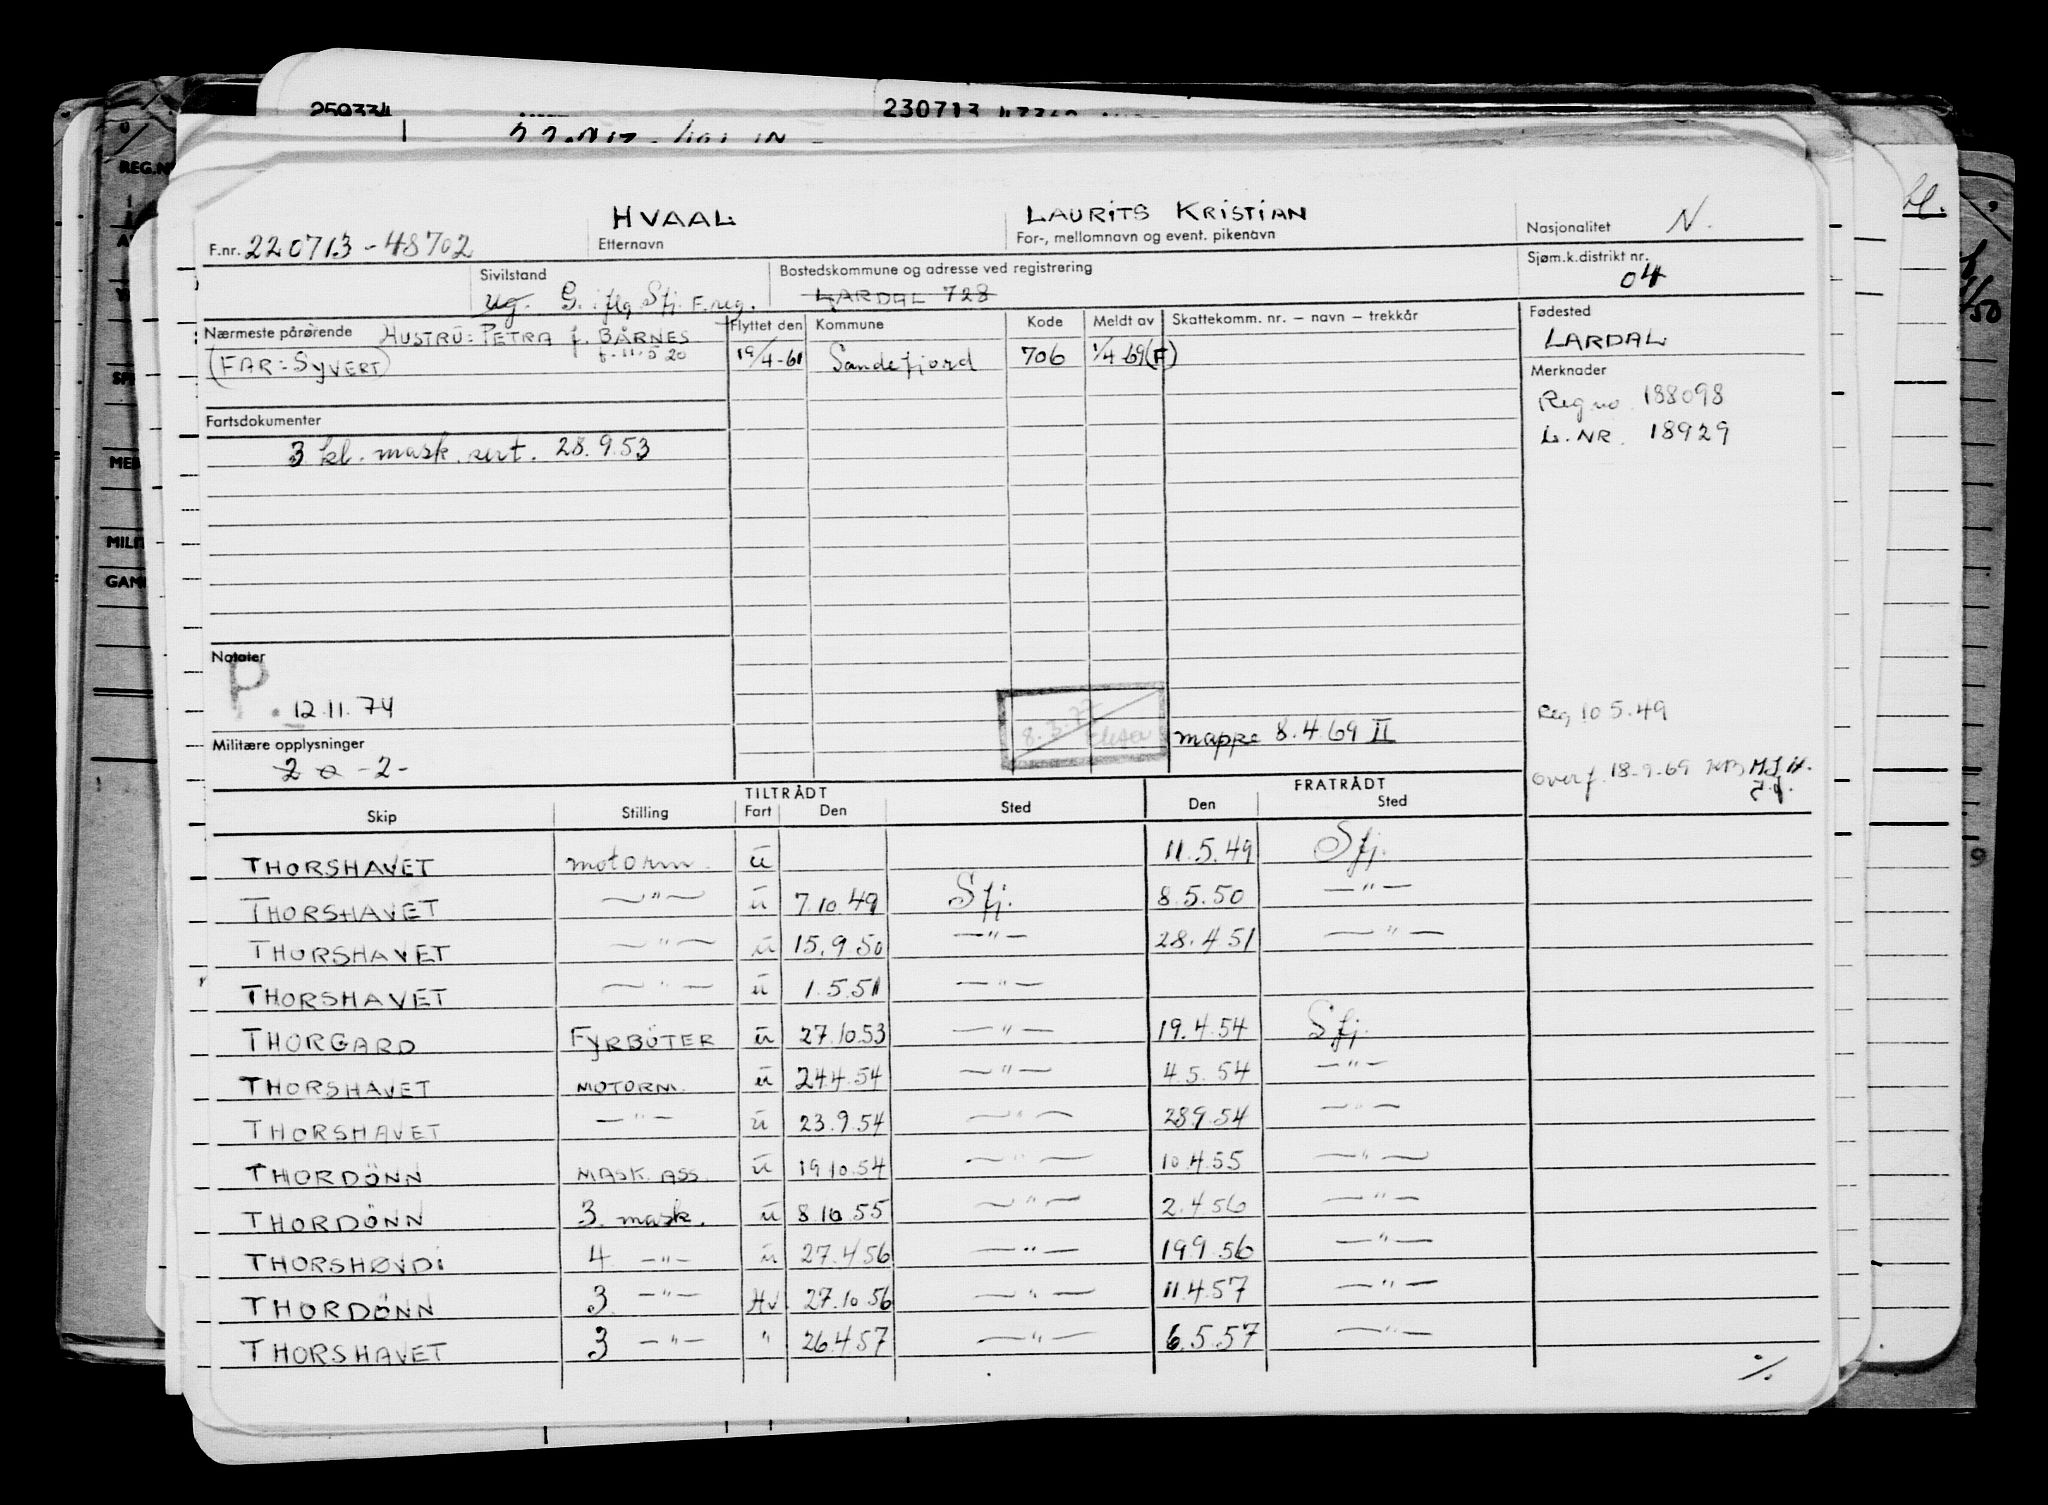 259334
230713
REG.N
HVAAL
LAURITS KRISTIAN
Nasjonalitet N.
F.nr. 220713-48702
Etternavn
For-, mellomnavn og event. pikenavn
Sivilstand
Bostedskommune og adresse ved registrering
Sjøm.k.distrikt nr.
04
ug. G. iflg Sfj. F.reg.
LARDAL 728
Nærmeste pårørende HUSTRU: PETRA f. BÅRNES
f. 11.5 20
(FAR: SYVERT)
Flyttet den Kommune Kode Meldt av Skattekomm. nr. – navn – trekkår
19/4-61 Sandefjord 706 1/4-69(F)
Fødested
LARDAL
Merknader
Reg no. 188098
L. NR. 18929
Fartsdokumenter
3 kl. mask. sert. 28.9.53
MILIT
Notater
P.
12.11.74
mappe 8.4.69 II
Reg 10 5.49
Militære opplysninger
2 a -2-
Overf. 18-9-69
TILTRÅDT FRATRÅDT
Skip Stilling Fart Den Sted Den Sted
THORSHAVET motorm. u 11.5.49 Sfj.
THORSHAVET —"— u 7.10.49 Sfj. 8.5.50 —"—
THORSHAVET —"— u 15.9.50 —"— 28.4.51 —"—
THORSHAVET —"— u 1.5.51 —"—
THORGARD FYRBÖTER u 27.10.53 —"— 19.4.54 Sfj.
THORSHAVET MOTORM. u 24.4.54 —"— 4.5.54 —"—
THORSHAVET —"— u 23.9.54 —"— 28.9.54 —"—
THORDÖNN MASK. ASS. u 19.10.54 —"— 10.4.55 —"—
THORDÖNN 3. mask. u 8.10.55 —"— 2.4.56 —"—
THORSHØVDI 4 —"— u 27.4.56 —"— 19.9.56 —"—
THORDÖNN 3. —"— Hv. 27.10.56 —"— 11.4.57 —"—
THORSHAVET 3 —"— " 26.4.57 —"— 6.5.57 —"—
%